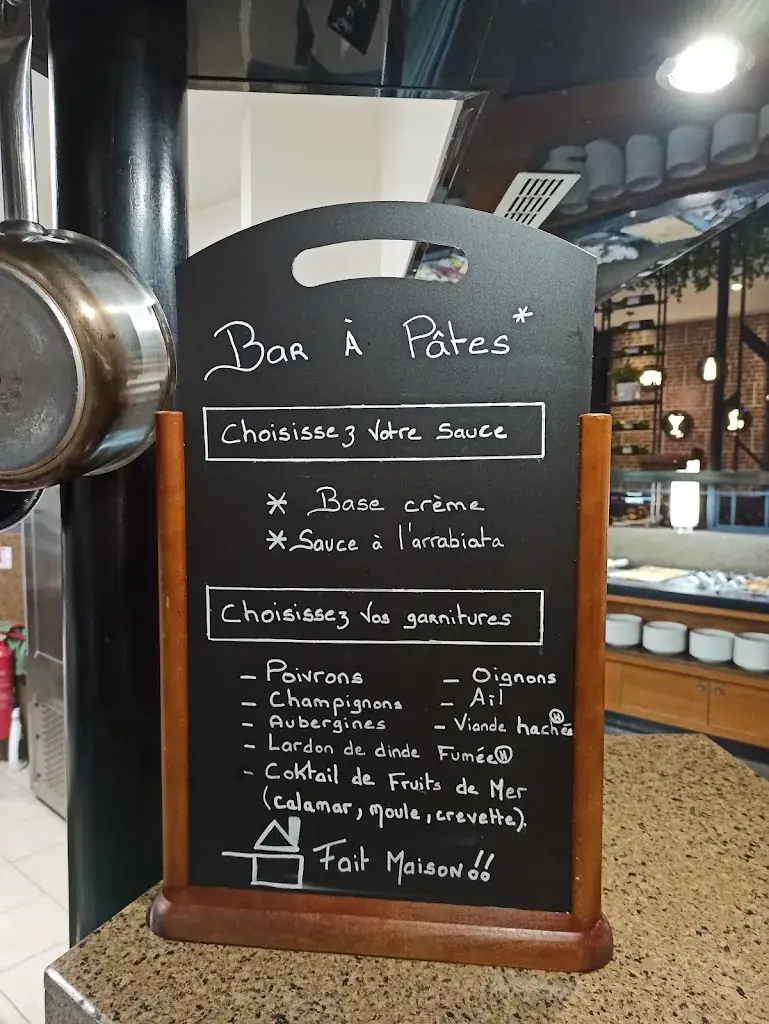 Bar À Pâtes*
Choisissez votre sauce
* Base crème
* Sauce à l'arrabiata
Choisissez vos garnitures
- Poivrons
- Oignons
- Champignons
- Ail
- Aubergines
- Viande hachée Ⓗ
- Lardon de dinde Fumée Ⓗ
- Coktail de Fruits de Mer
(calamar, moule, crevette).
Fait Maison!!